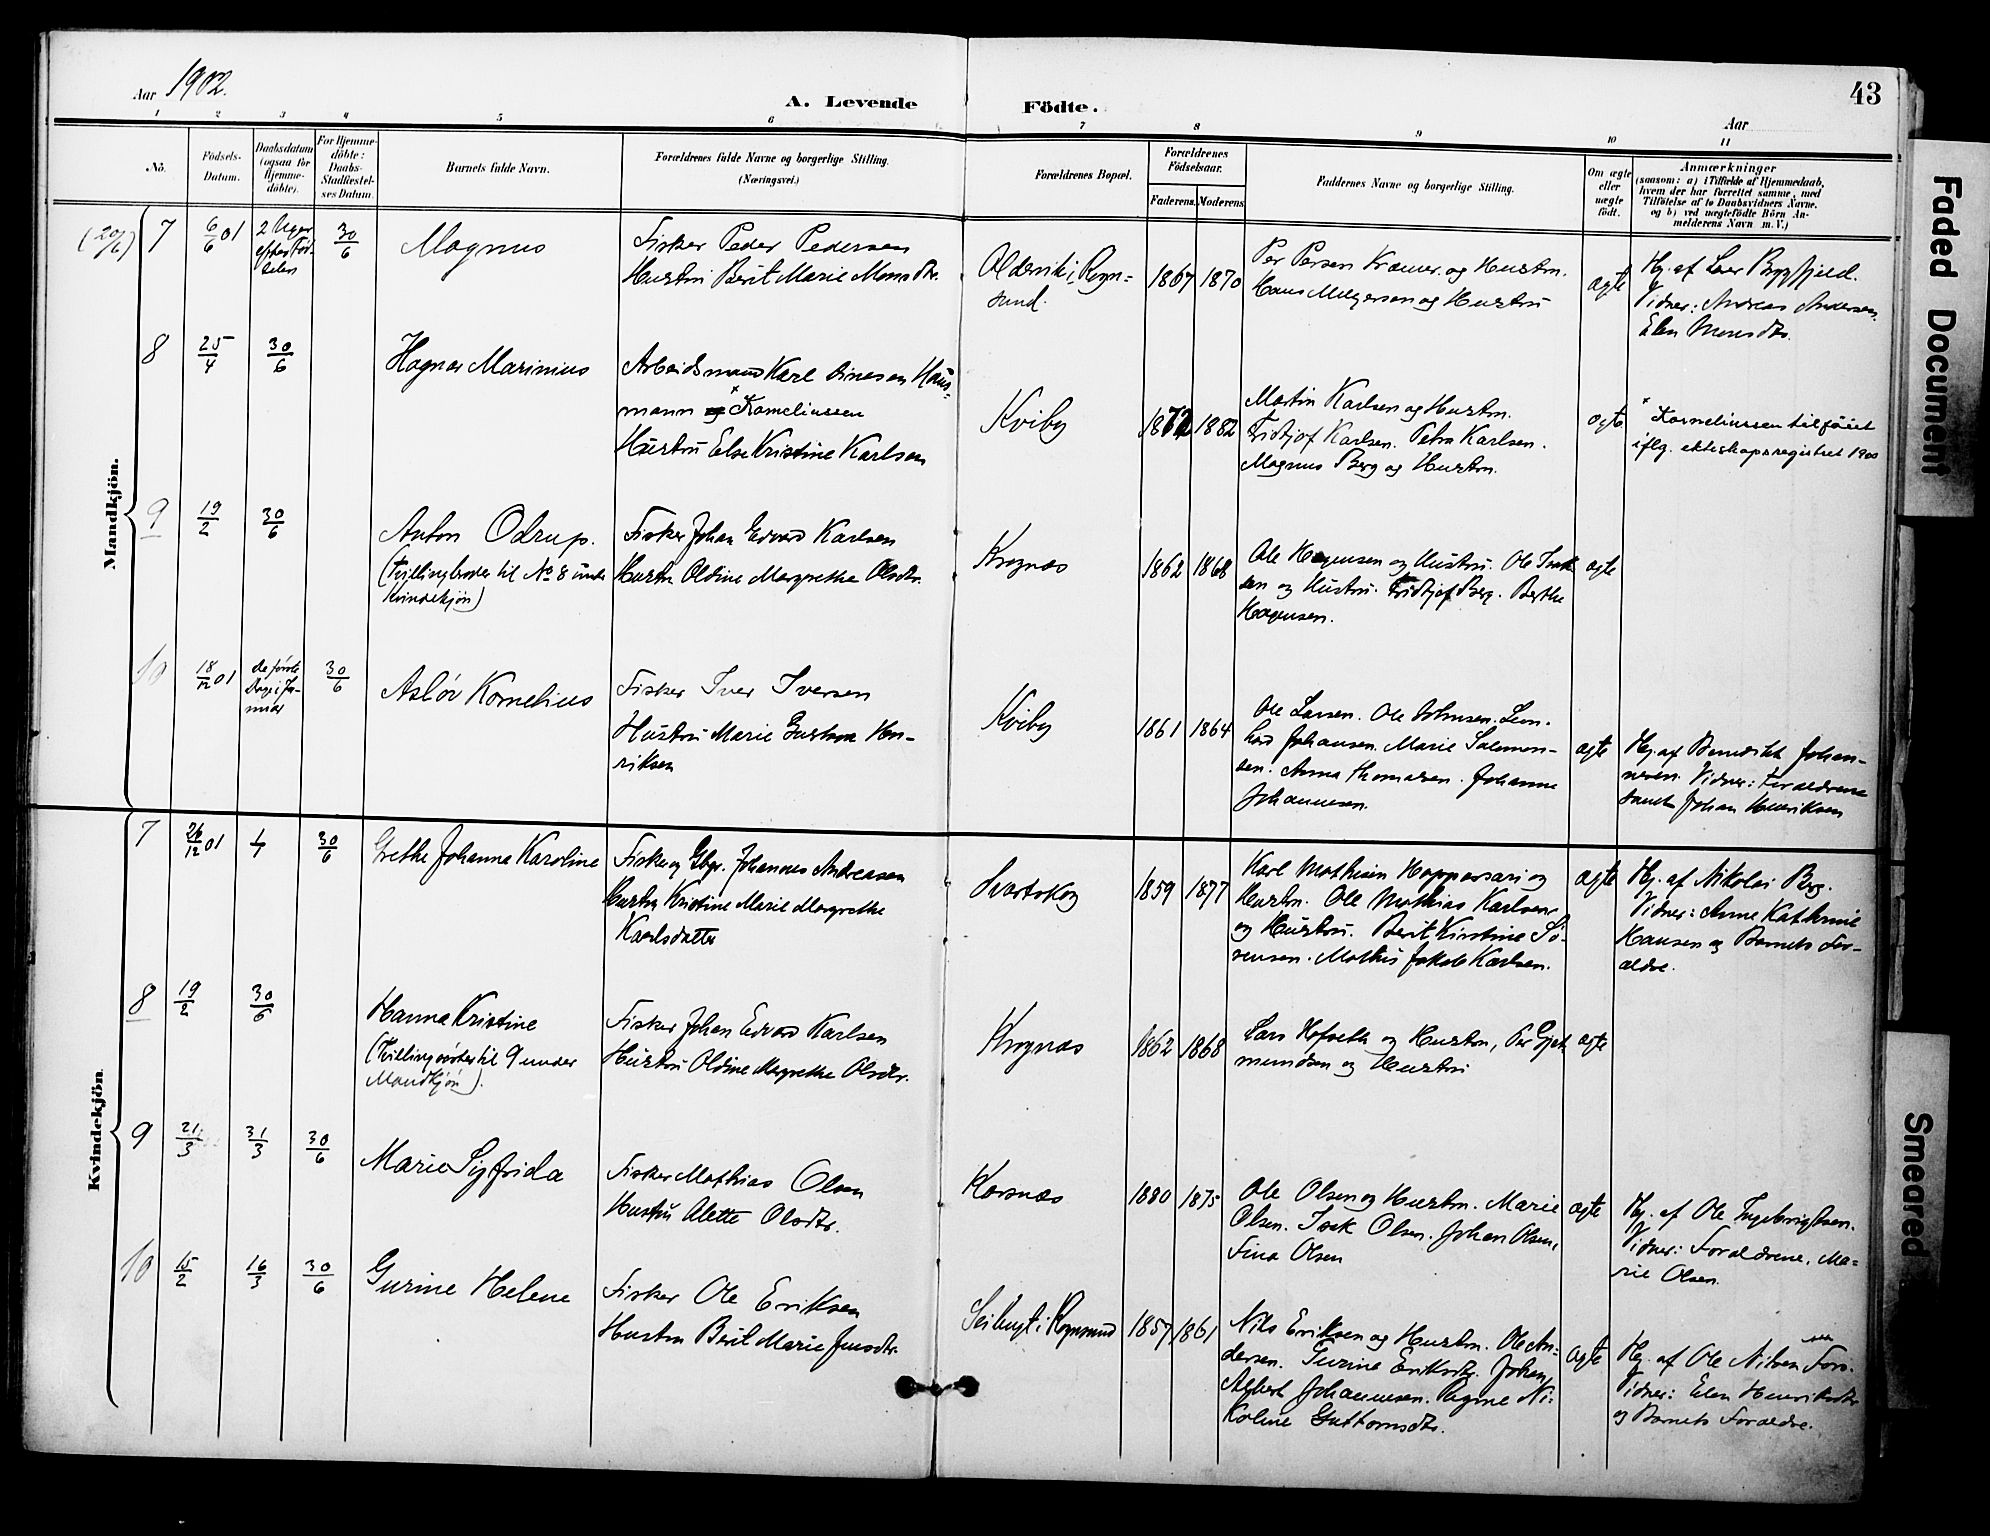 Aar 1902.
A. Levende Födte.
43
Aar
1 2 3 4 5 6 7 8 9 10 11
No.
Födsels-
Datum.
Daabsdatum
(ogsaa for
Hjemme-
döbte).
For Hjemme-
döbte:
Daabs-
Stadfæstel-
ses Datum.
Barnets fulde Navn.
Forældrenes fulde Navne og borgerlige Stilling.
(Næringsvei.)
Forældrenes Bopæl.
Forældrenes
Födselsaar.
Faderens. Moderens.
Faddernes Navne og borgerlige Stilling.
Om ægte
eller
uægte
födt.
Anmærkninger
(saasom: a) i Tilfælde af Hjemmedaab,
hvem der har forrettet samme, med
Tilföielse af to Daabsvidners Navne.
og b) ved uægtefödte Börn An-
melderens Navn m. V.)
Mandkjön.
(20/6) 7
6/6 01
2 Uger
efter Föd-
selen
30/6
Magnus
Fisker Peder Pedersen
Hustru Berit Marie Monsdtr.
Oldervik i Rogn-
sund.
1867 1870
Per Persen Kræmer og Hustru.
Hans Mogersen og Hustru
ægte
Hj. af Lær Byggfjeld.
Vidner: Andreas Andersen
Elen Monsdtr.
8
25/4
30/6
Hagnar Marinius
Arbeidsmand Karl Hans-
mann og × Korneliussen
Hustru Else Kristine Karlsen
Kviby
1872 1882
Martin Karlsen og Hustru.
Fridtjof Karlsen. Petra Karlsen.
Magnus Berg og Hustru.
ægte
× Korneliussen tilföiet
iflg. ekteskapsregistret 1900
9
19/2
30/6
Anton Odrup.
(Tvillingbroder til No 8 under
Kvindekjön)
Fisker Johan Edvard Karlsen
Hustru Oldine Margrethe Olsdtr.
Krognæs
1862 1868
Ole Hagensen og Hustru. Ole Isak-
sen og Hustru. Fridtjof Berg. Berthe
Hagensen.
ægte
10
18/12 01
de förste
Dage i Ja-
nuar
30/6
Aslöv Kornelius
Fisker Iver Iversen
Hustru Marie Gustava Hen-
riksen
Kviby
1861 1864
Ole Larsen. Ole Johnsen. Leon-
hard Johansen. Marie Salomon-
sen. Anna Thomasen. Johanne
Johannesen.
ægte
Hj. af Benedikt Johan-
nesen. Vidner: Forældrene
samt Johan Henriksen
Kvindekjön.
7
26/12 01
1/1
30/6
Grethe Johanna Karoline
Fisker og Gbgr. Johannes Andreasen
Hustru Kristine Marie Margrethe
Karlsdatter
Svartskog
1859 1877
Karl Mathisen Kappessari og
Hustru. Ole Mathias Karlsen
og Hustru. Berit Kirstine Sö-
rensen. Mathis Jakob Karlsen.
ægte
Hj. af Nikolai Berg.
Vidner: Anne Kathrine
Hansen og Barnets For-
ældre.
8
19/2
30/6
Hanna Kristine
(Tvillingsöster til 9 under
Mandkjön).
Fisker Johan Edvard Karlsen
Hustru Oldine Margrethe Olsdtr.
Krognæs
1862 1868
Lars Hofseth og Hustru, Per
mundsen og Hustru
ægte
9
21/3
31/3
30/6
Marie Sigfrida
Fisker Mathias Olsen
Hustru Alette Olsdtr.
Korsnæs
1880 1875
Ole Olsen og Hustru. Marie
Olsen. Isak Olsen. Johan Olsen,
Fina Olsen
ægte
Hj. af Ole Ingebrigtsen.
Vidner: Forældrene, Ma-
rie Olsen.
10
15/2
16/3
30/6
Gurine Helene
Fisker Ole Eriksen
Hustru Berit Marie Jensdtr.
Seibugt i Rognsund
1857 1861
Nils Eriksen og Hustru. Ole An-
dersen. Gurine Eriksdtr. Johan
Albert Johannesen. Ragne Ni-
koline Guttormsdtr.
ægte
Hj. af Ole Nilsen
Vidner: Elen Henriksdtr
og Barnets Forældre.
Faded Document
Smeared